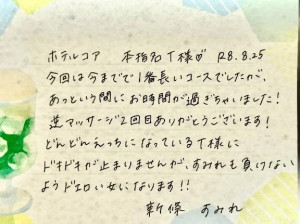 ホテルコア 本指名T様♡ R8.8.25
今回は今までで1番長いコースでしたが、
あっという間にお時間が過ぎちゃいました!
逆マッサージ2回目ありがとうございます!
どんどんえっちになっているT様に
ドキドキが止まりませんが、すみれも負けない
ようドエロい女になります!!
新條 すみれ